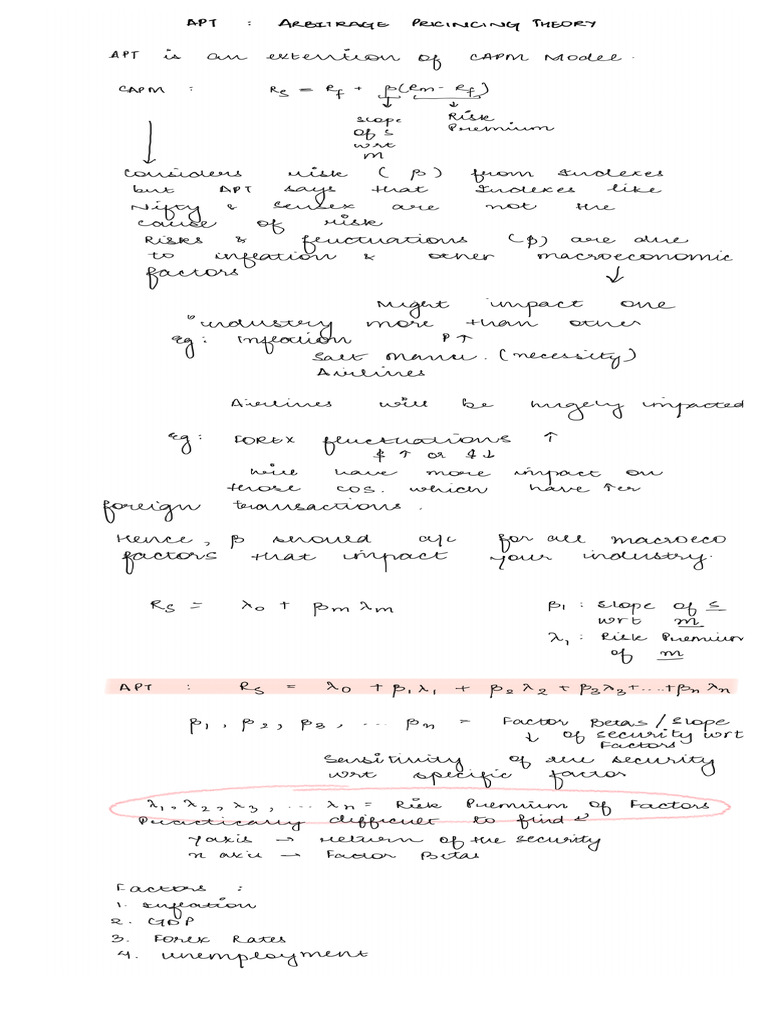 APT : ARBITRAGE PRICINCING THEORY
APT is an extention of CAPM Model.
CAPM : Rs = Rf + β(Rm - Rf)
↓ ↓
Slope Risk
of S Premium
wrt
m
↓
Considers risk (β) from Indexes
but APT says that Indexes like
Nifty & Sensex are not the
cause of risk
Risks & fluctuations (β) are due
to inflation & other macroeconomic
factors ↓
Might impact one
industry more than other
Eg: Inflation P↑
Salt Manu. (necessity)
Airlines
Airlines will be hugely impacted
Eg: FOREX fluctuations ↑
$ ↑ or $ ↓
will have more impact on
those cos. which have ↑er
foreign transactions.
Hence, β should a/c for all macroeco
factors that impact your industry.
Rs = λ0 + βm λm
β1 : Slope of S
wrt m
λ1 : Risk Premium
of m
APT : Rs = λ0 + β1λ1 + β2λ2 + β3λ3 + .... + βn λn
β1, β2, β3, ... βn = Factor Betas / Slope
↓ of security wrt
Factors
Sensitivity of the security
wrt specific factor
λ1, λ2, λ3, ... λn = Risk Premium of Factors
Practically difficult to find
Yaxis → return of the security
x axis → Factor Betas
Factors :
1. Inflation
2. GDP
3. Forex Rates
4. Unemployment